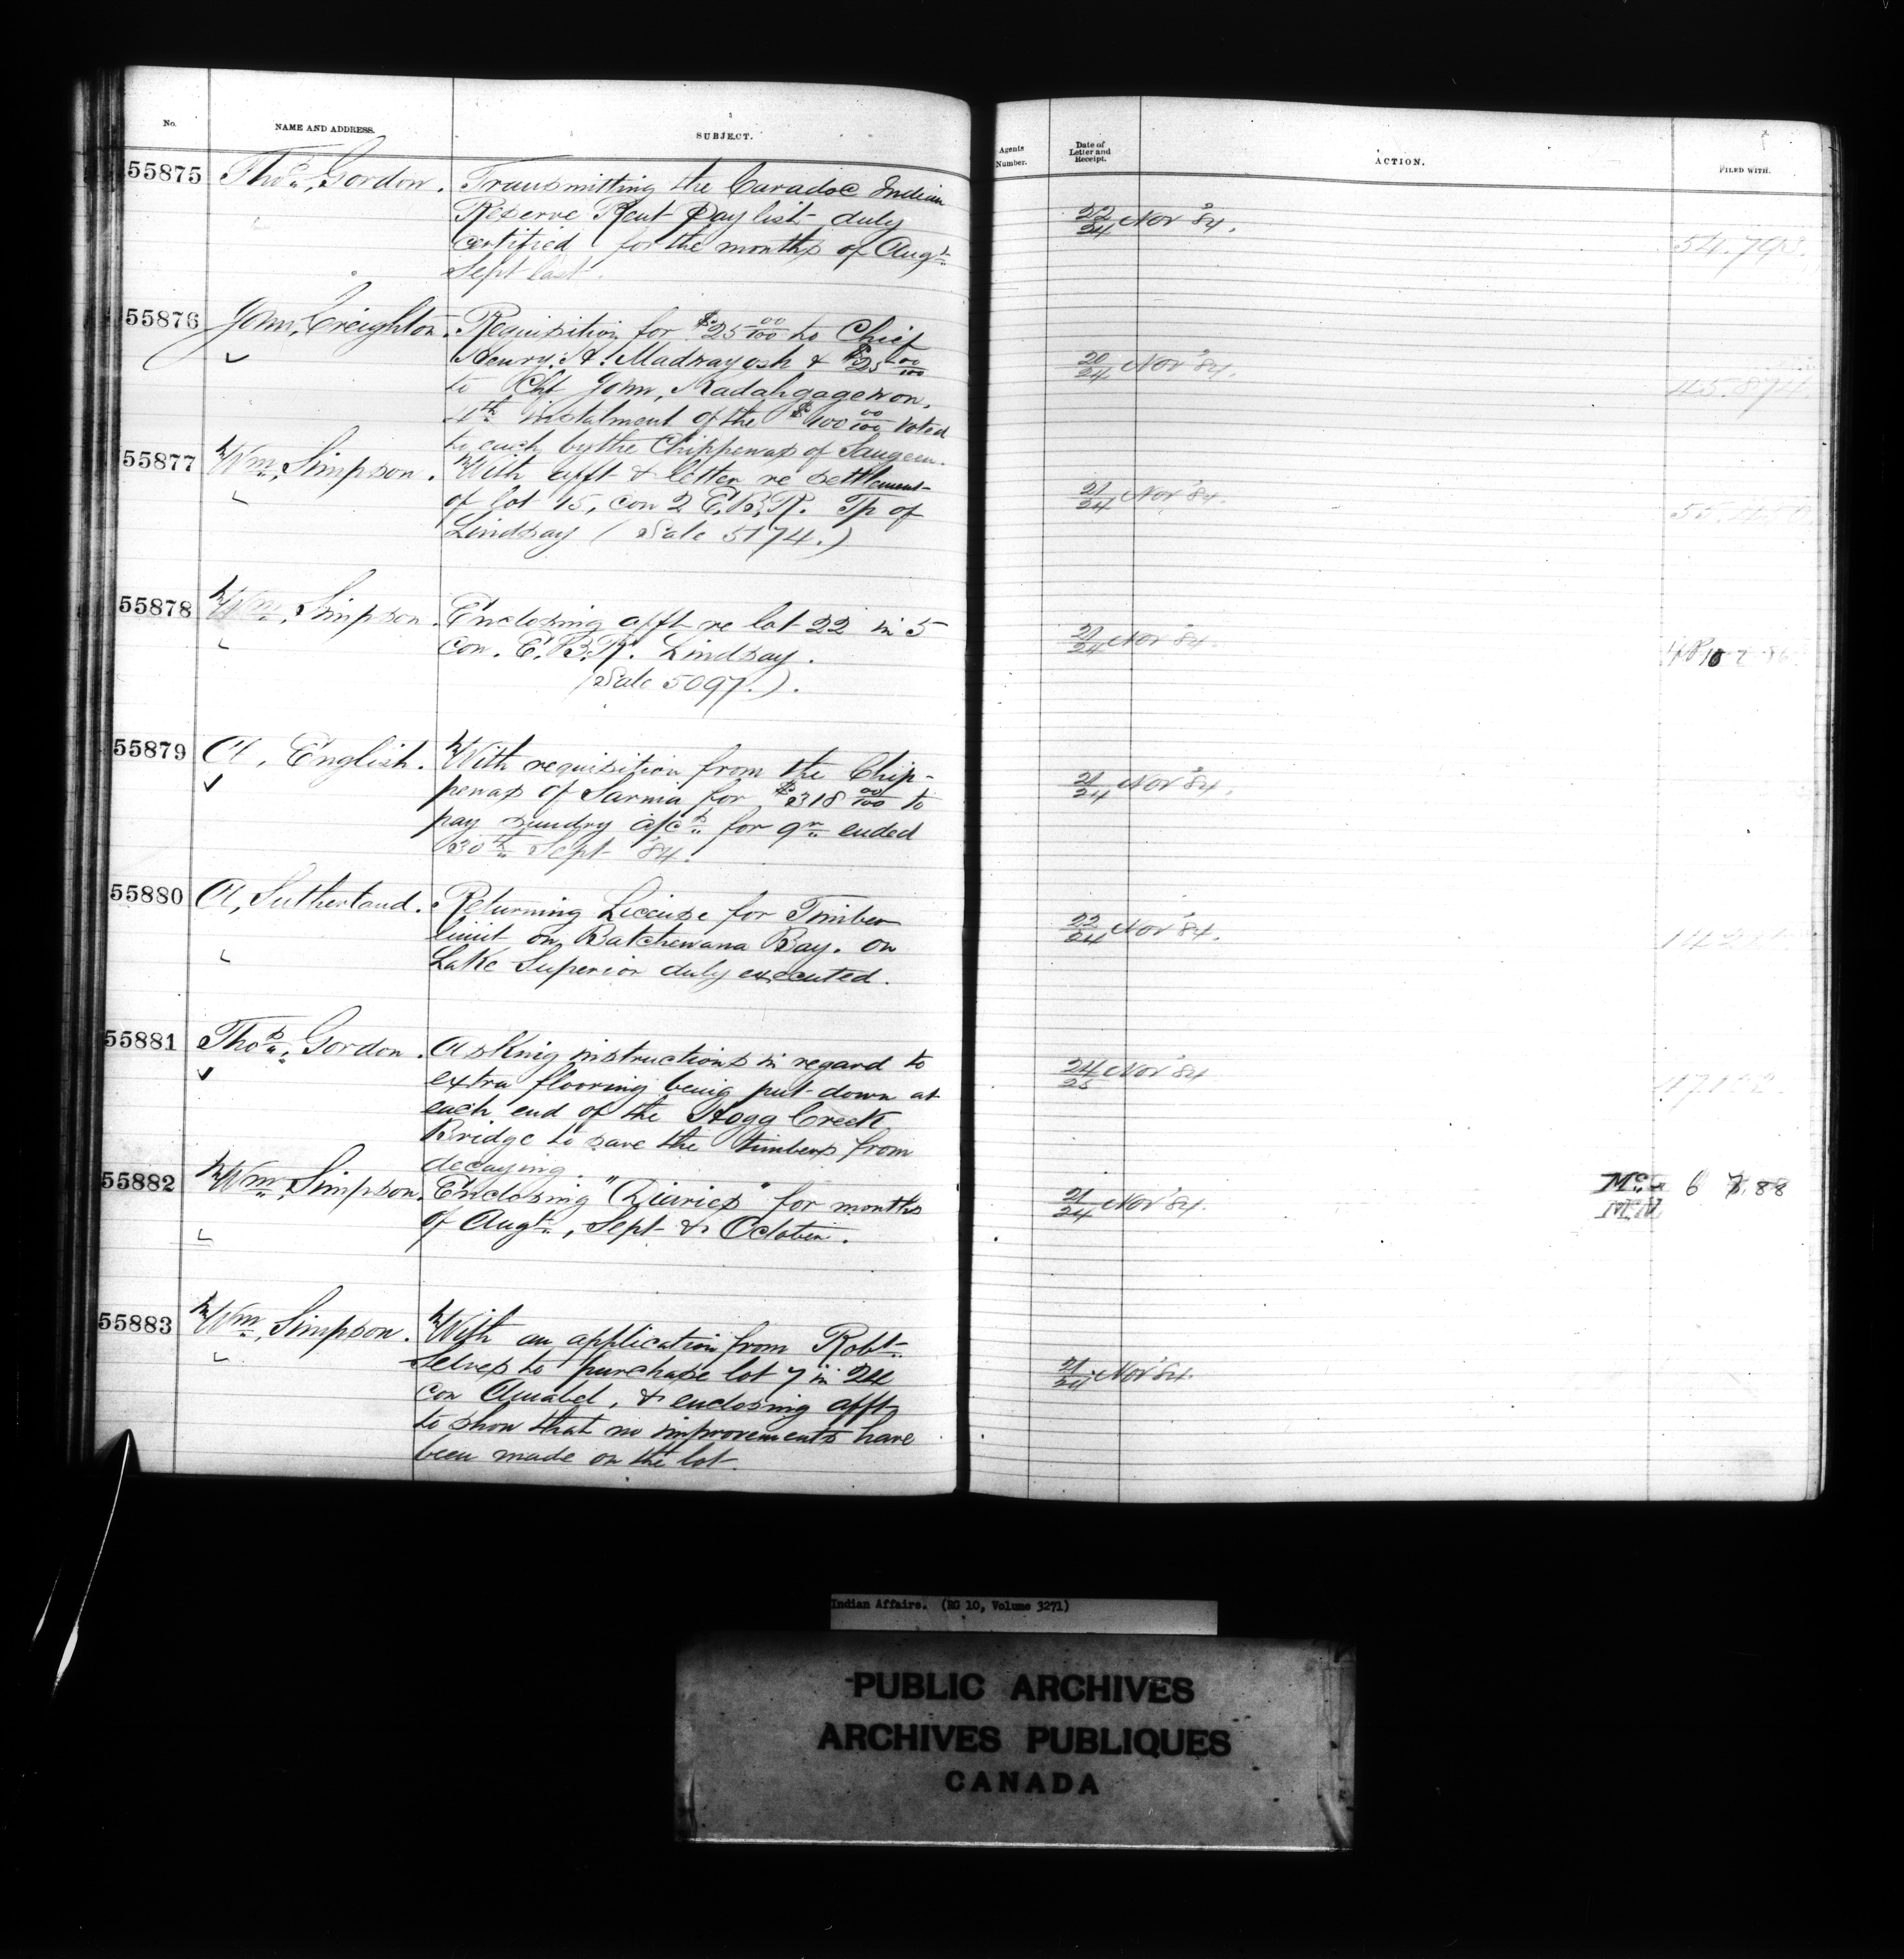 No. NAME AND ADDRESS. SUBJECT. Agents Number. Date of Letter and Receipt. ACTION. FILED WITH.
55875 Thos. Gordon. Transmitting the Caradoc Indian
Reserve Rent Pay list duly
certified for the months of Augt.
Sept last.
22/24 Nov '84.
55876 John Creighton. Requisition for $25 00/100 to Chief
Henry H. Madwayosh & $25 00/100
to Chf John Kadahgagewon,
4th instalment of the $100 00/100 voted
to each by the Chippewas of Saugeen.
20/24 Nov '84.
55877 Wm. Simpson. With afft & letter re settlement
of lot 15, con 2 E.B.R. Tp of
Lindsay (Sale 5174.)
21/24 Nov '84.
55878 Wm. Simpson. Enclosing afft re lot 22 in 5
con. E.B.R. Lindsay.
(Sale 5097.).
21/24 Nov '84.
55879 A. English. With requisition from the Chip-
pewas of Sarnia for $318 00/100 to
pay sundry a/cs for qr ended
30th Sept '84.
21/24 Nov '84.
55880 A. Sutherland. Returning License for Timber
limit on Batchewana Bay. on
Lake Superior duly executed.
22/24 Nov '84.
55881 Thos. Gordon. Asking instructions in regard to
extra flooring being put down at
each end of the Hogg Creek
Bridge to save the timbers from
decaying.
24/25 Nov '84
55882 Wm. Simpson. Enclosing "Diaries" for months
of Augt., Sept & October.
21/24 Nov '84.
6 7.88
55883 Wm. Simpson. With an application from Robt.
Selves to purchase lot 7 in 24
con Amabel, & enclosing afft
to show that no improvements have
been made on the lot.
21/24 Nov '84.
Indian Affairs. (RG 10, Volume 3271)
PUBLIC ARCHIVES
ARCHIVES PUBLIQUES
CANADA